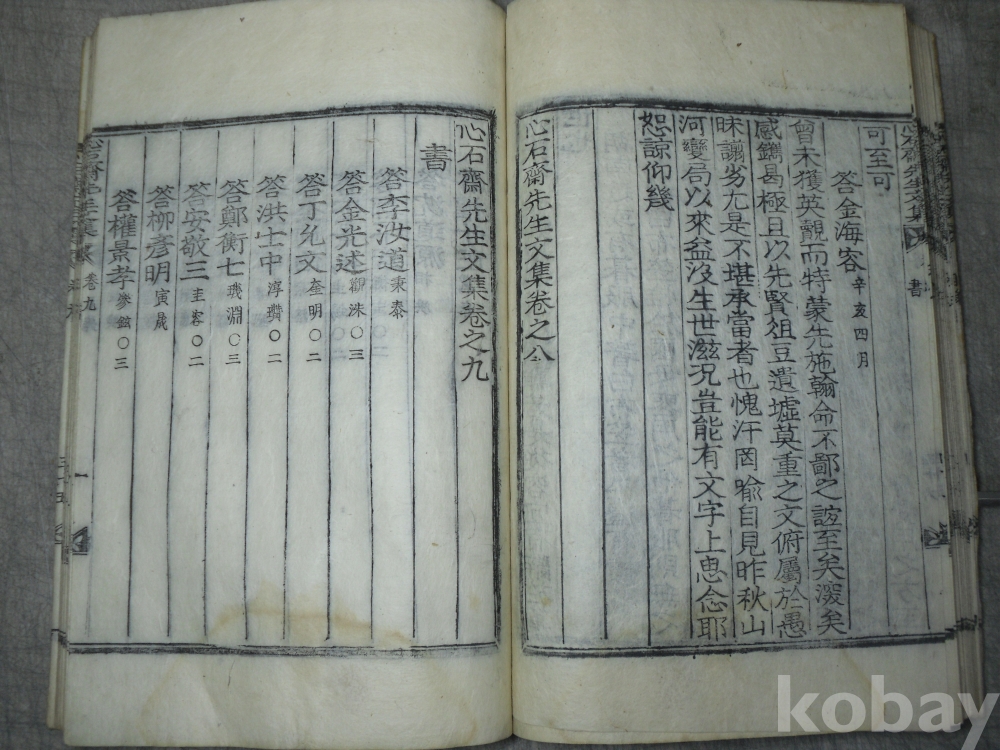 可至可
答金海容 辛亥四月
曾未獲英覿而特蒙先施翰命不鄙之誼至矣深矣
感鐫曷極且以先賢俎豆遺墟莫重之文俯屬於愚
昧謭劣尤是不堪承當者也愧汗罔喩自見昨秋山
河變局以來益沒生世滋況豈能有文字上惠念耶
恕諒仰幾
心石齋先生文集卷之八
心石齋先生文集卷之九
書
答李汝道 秉泰
答金光述 洙〇三
答丁允文 奎明〇二
答洪士中 淳瓚〇二
答鄭衡七 璣淵〇三
答安敬三 圭容〇二
答柳彦明 寅晟
答權景孝 鉉〇三
卷九
書
kobay